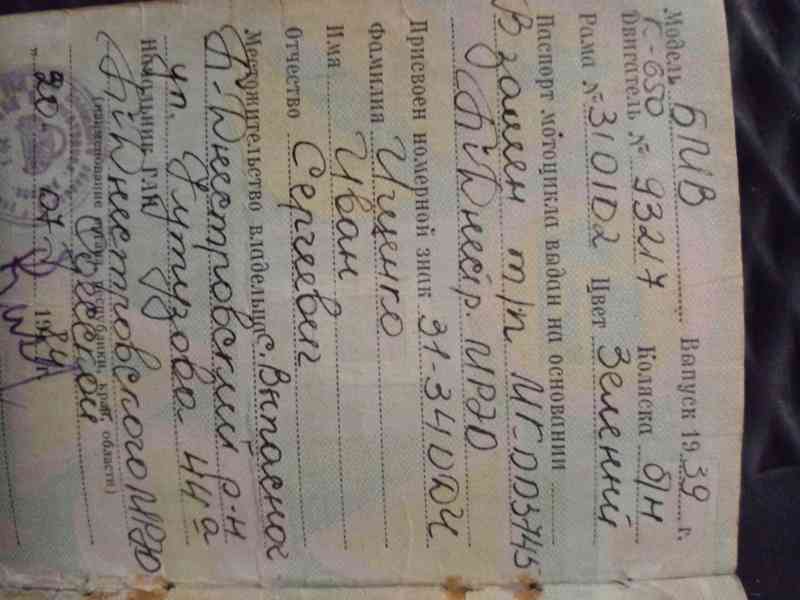 Модель БМВ Выпуск 1939 г.
К-650
Двигатель № 93217 Коляска б/н
Рама № 310102 Цвет Зеленый
Паспорт мотоцикла выдан на основании
Взамен т/п МГ 003745
Б-Днестр. МРЭО
Присвоен номерной знак 31-34 ОЮЧ
Фамилия Ищенко
Имя Иван
Отчество Сергеевич
Местожительство владельца с. Выпасное
Б-Днестровский р-н
ул. Кутузова 44а
Начальник ГАИ
Б-Днестровского МРЭО
(наименование республики, края, области)
Одесской
"20" 07 1984